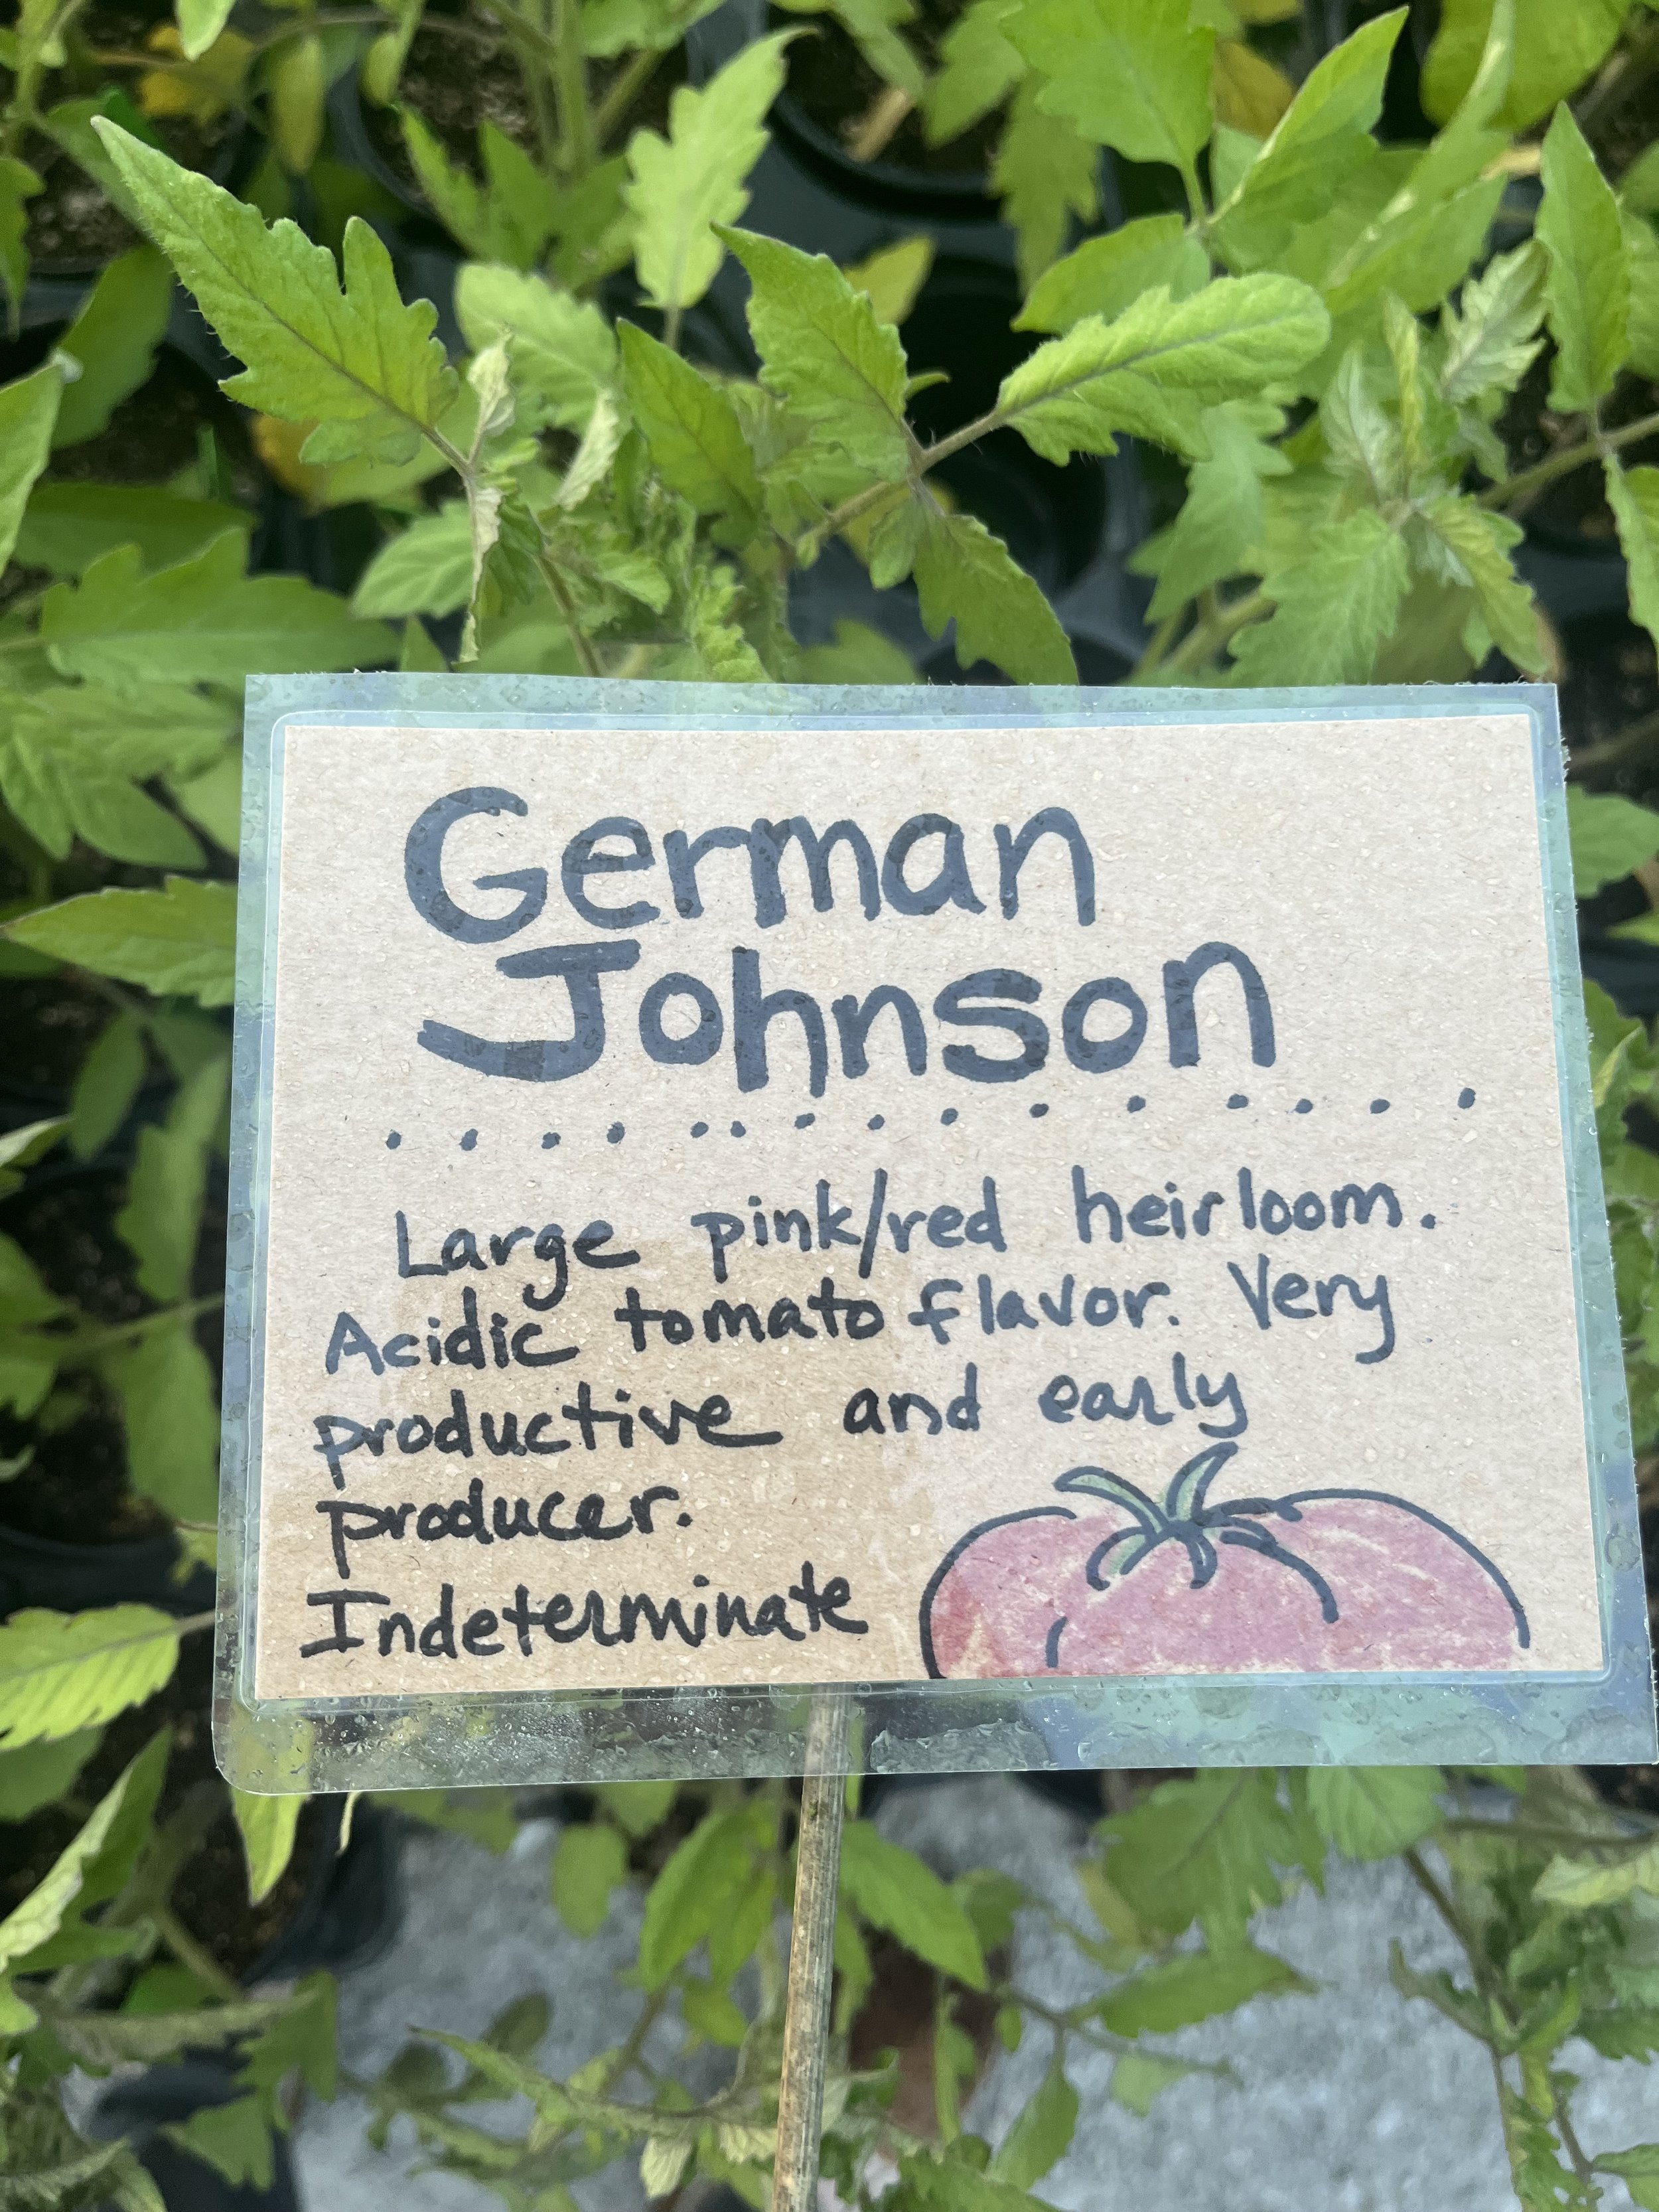 German
Johnson
Large pink/red heirloom.
Acidic tomato flavor. Very
productive and early
producer.
Indeterminate